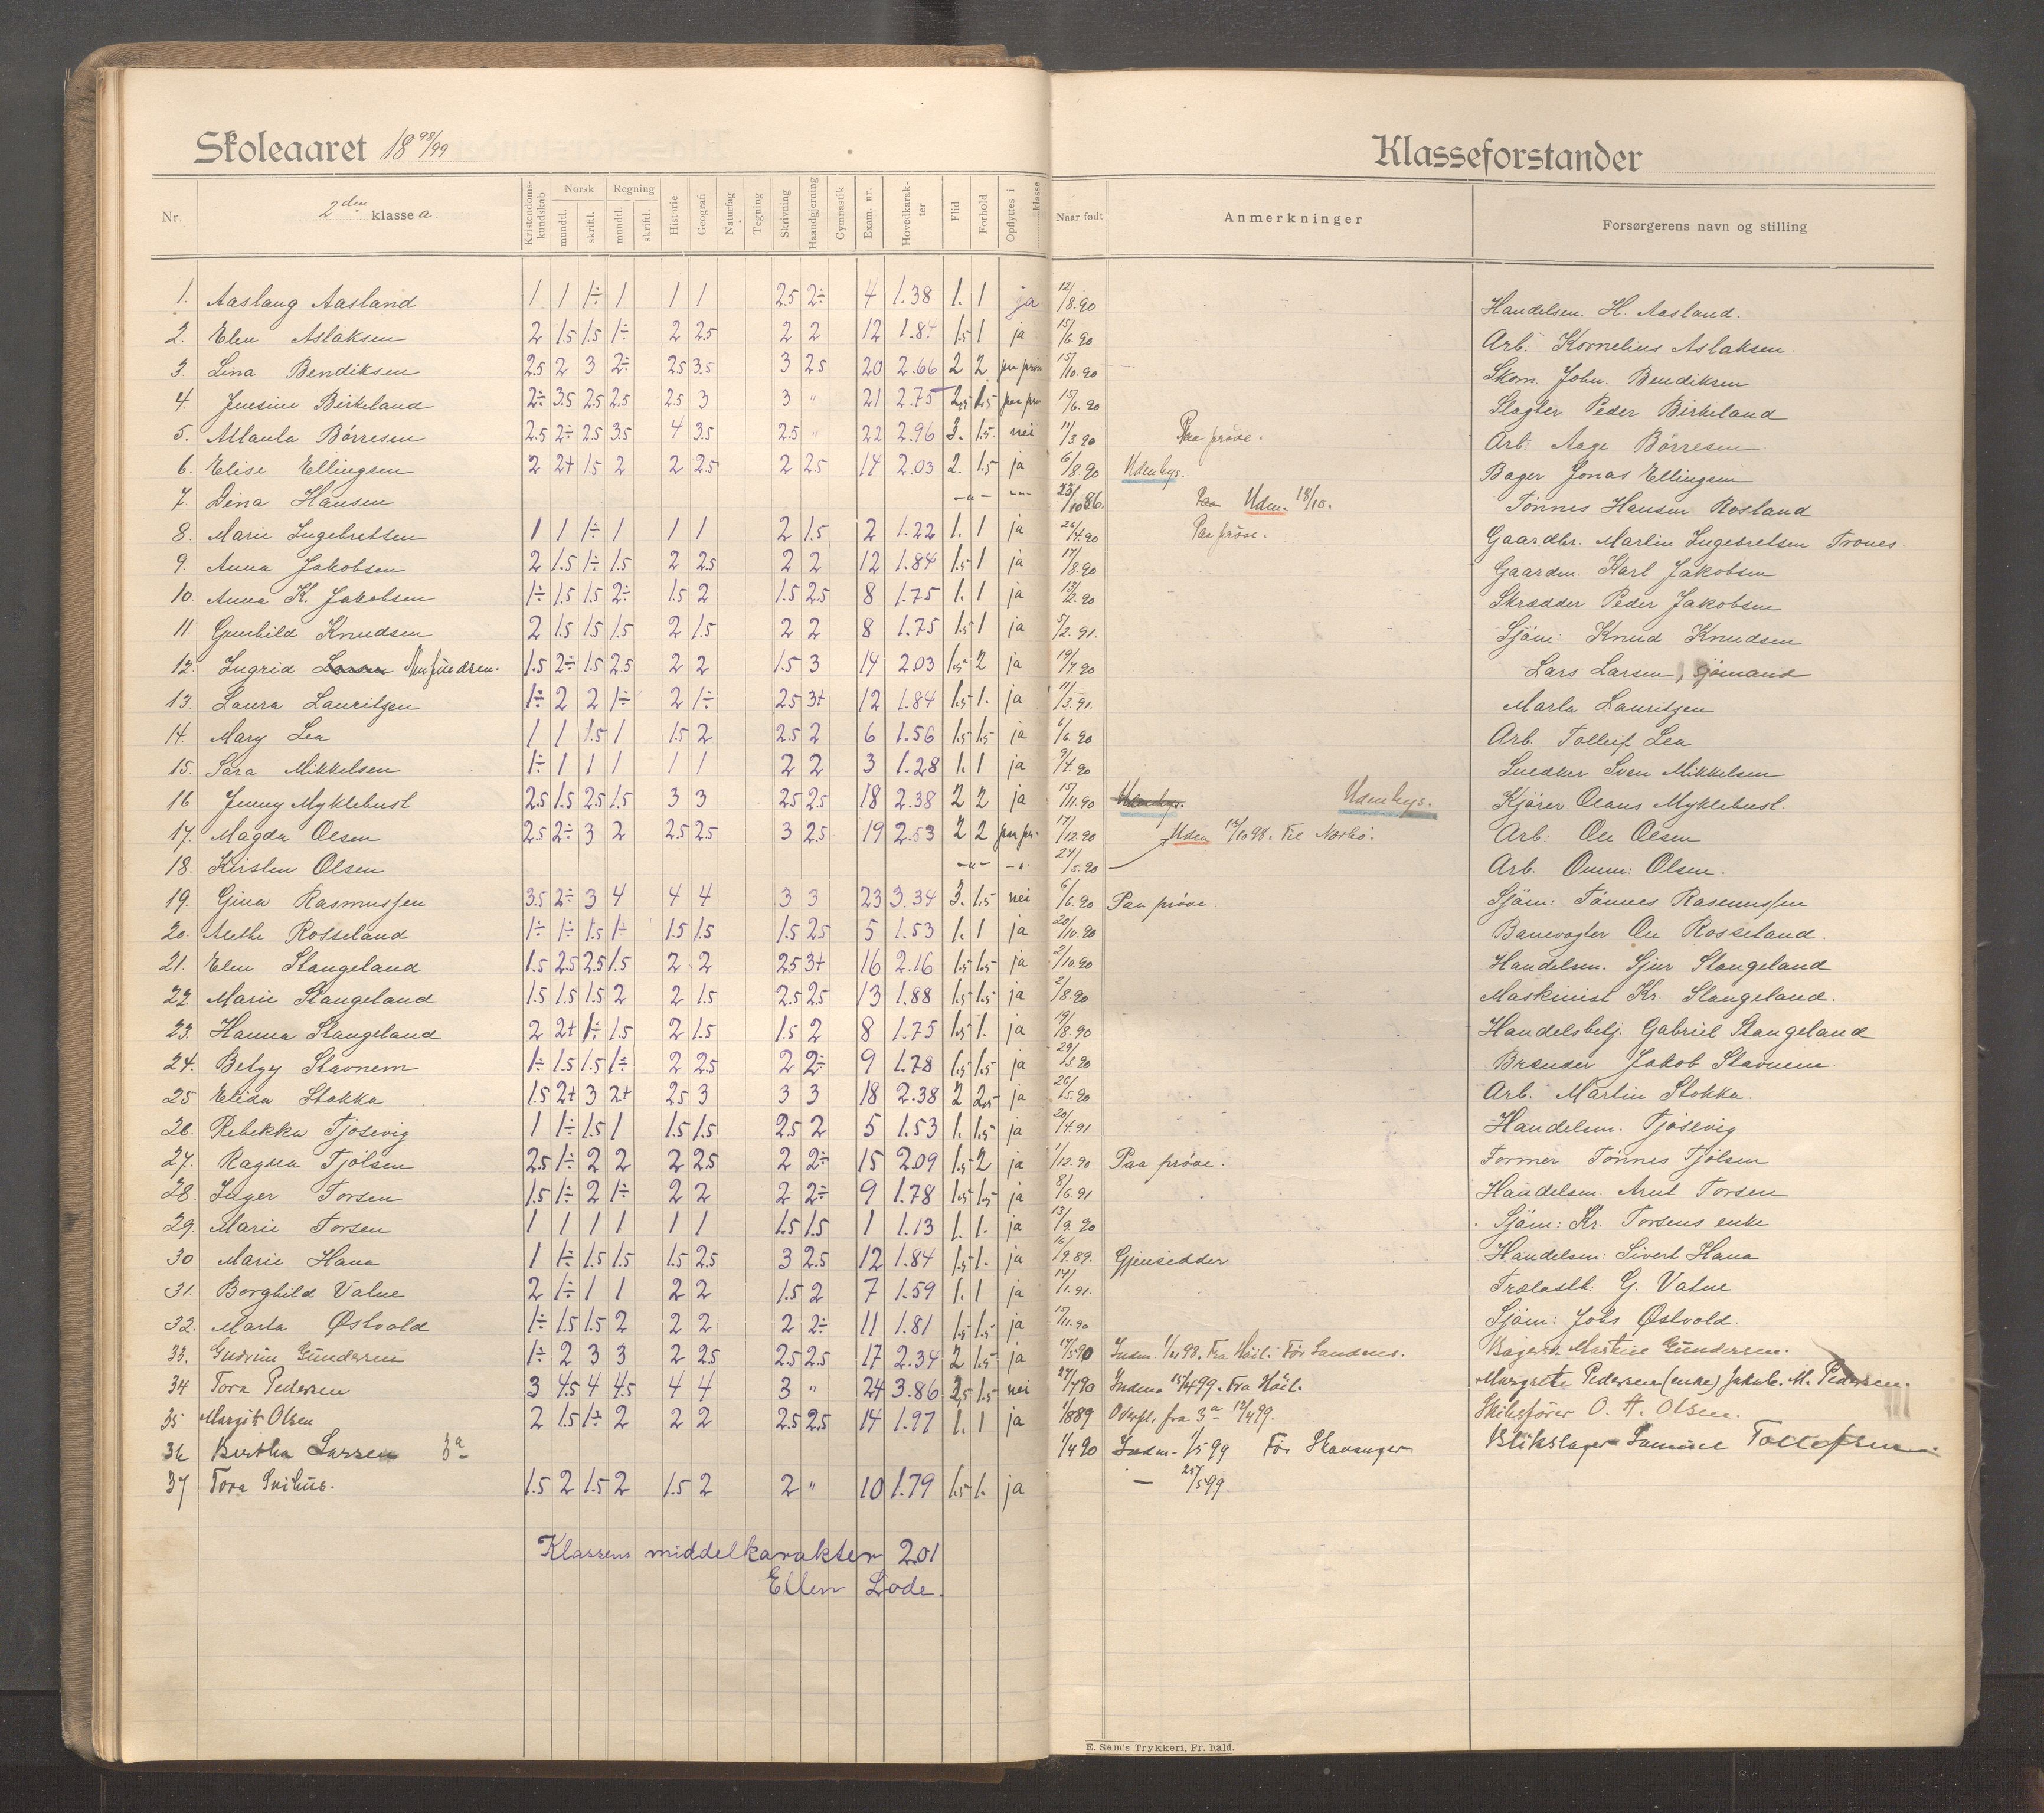 Skoleaaret 18 98/99
Klasseforstander
Nr. 2den klasse a. Kristendoms-kundskab Norsk mundtl. skriftl. Regning mundtl. skriftl. Historie Geografi Naturfag Tegning Skrivning Haandgjerning Gymnastik Exam. nr. Hovedkarakter Flid Forhold Opflyttes i klasse Naar født Anmerkninger Forsørgerens navn og stilling
1. Aaslaug Aasland 1 1 1÷ 1 1 1 2.5 2÷ 4 1.38 1. 1 ja 12/8.90 Handelsm. H. Aasland.
2. Elen Aslaksen 2 1.5 1.5 1÷ 2 2.5 2 2 12 1.84 1.5 1 ja 15/6.90 Arb: Kornelius Aslaksen.
3. Lina Bendiksen 2.5 2 3 2÷ 2.5 3.5 3 2.5 20 2.66 2 2 paa prøve 15/10.90 Skom. John. Bendiksen
4. Jensine Birkeland 2÷ 3.5 2.5 2.5 2.5 3 3 " 21 2.75 2.5 1.5 paa prø 15/6.90 Slagter Peder Birkeland
5. Maula Børresen 2.5 2÷ 2.5 3.5 4 3.5 2.5 " 22 2.96 3. 1.5 nei 11/3.90 Paa prøve. Arb: Aage Børresen
6. Elise Ellingsen 2 2+ 1.5 2 2 2.5 2 2.5 14 2.03 2. 1.5 ja 6/8.90 Udenbys. Bager Jonas Ellingsen
7. Dina Hansen -"- -"- 23/10 86. Paa Udm. 18/10. Tønnes Hansen Rosland
8. Marie Ingebretsen 1 1 1÷ 1 1 1 2 1.5 2 1.22 1. 1 ja 26/4.90 Paa prøve. Gaardbr. Martin Ingebretsen Trones.
9. Anna Jakobsen 2 1.5 1÷ 1.5 2 2.5 2 2 12 1.84 1.5 1 ja 17/8.90 Gaardm. Karl Jakobsen
10. Anna K. Jakobsen 1÷ 1.5 1.5 2÷ 1.5 2 1.5 2.5 8 1.75 1. 1 ja 13/2.90 Skrædder Peder Jakobsen
11. Gunhild Knudsen 2 1.5 1.5 1.5 2 1.5 2 2 8 1.75 1.5 1 ja 5/2.91. Sjøm: Knud Knudsen
12. Ingrid Larsen 1.5 2÷ 1.5 2.5 2 2 1.5 3 14 2.03 1.5 2 ja 19/7.90 Lars Larsen, sjømand
13. Laura Lauritzen 1÷ 2 2 1÷ 2 1÷ 2.5 3+ 12 1.84 1.5 1. ja 11/3.91. Marta Lauritzen
14. Mary Lea 1 1 1.5 1 1.5 2 2.5 2 6 1.56 1.5 1.5 ja 6/6.90 Arb. Tolleif Lea
15. Sara Mikkelsen 1÷ 1 1 1 1 1 2 2 3 1.28 1. 1 ja 9/4.90 Snedker Sven Mikkelsen
16 Jenny Myklebust 2.5 1.5 2.5 1.5 3 3 2.5 2.5 18 2.38 2 2 ja 15/11.90 Udenbys. Udenbys. Kjører Olaus Myklebust.
17. Magda Olsen 2.5 2÷ 3 2 2.5 2.5 3 2.5 19 2.53 2 2 paa pr. 17/12.90 Udm 15/10 98. Til Nærbø. Arb: Ole Olsen
18. Kirsten Olsen -"- -"- 24/5.90 Arb. Omm: Olsen.
19. Gina Rasmussen 3.5 2÷ 3 4 4 4 3 3 23 3.34 3. 1.5 nei 6/6.90 Paa prøve. Sjøm: Tønnes Rasmussen
20. Mette Rosseland 1÷ 1÷ 1.5 1÷ 1.5 1.5 1.5 2.5 5 1.53 1. 1 ja 20/10.90 Banevogter Ole Rosseland.
21. Elen Stangeland 1.5 2.5 2.5 1.5 2 2 2.5 3+ 16 2.16 1.5 1.5 ja 2/10.90 Handelsm. Sjur Stangeland
22. Marie Stangeland 1.5 1.5 1.5 2 2 1.5 2.5 2.5 13 1.88 1.5 1.5 ja 2/8.90 Maskinist Kr. Stangeland.
23. Hanna Stangeland 2 2+ 1÷ 1.5 2 1.5 1.5 2 8 1.75 1.5 1. ja 19/8.90 Handelsbetj. Gabriel Stangeland
24. Betzy Stavnem 1÷ 1.5 1.5 1÷ 2 2.5 2 2÷ 9 1.78 1.5 1.5 ja 29/3.90 Brænder Jakob Stavnem.
25 Elida Stokka 1.5 2+ 3 2+ 2.5 3 3 3 18 2.38 2 2.5 ja 26/5.90 Arb. Martin Stokka.
26. Rebekka Tjøsevig 1 1÷ 1.5 1 1.5 1.5 2.5 2 5 1.53 1. 1.5 ja 20/4.91 Handelsm. Tjøsevig
27. Ragna Tjølsen 2.5 1÷ 2 2 2 2.5 2 2÷ 15 2.09 1.5 2 ja 1/12.90 Paa prøve. Former Tønnes Tjølsen
28. Inger Torsen 1.5 1÷ 2 1÷ 2 2 2 2÷ 9 1.78 1.5 1.5 ja 8/6.91 Handelsm. Arnt Torsen
29. Marie Torsen 1 1 1 1 1 1 1.5 1.5 1 1.13 1. 1. ja 13/9.90 Sjøm: Kr. Torsens enke
30 Marie Hana 1 1÷ 1.5 1.5 1.5 2.5 3 2.5 12 1.84 1.5 1. ja 16/9.89. Gjensidder Handelsm: Sivert Hana
31. Borghild Vatne 2 1÷ 1 1 2 2 1.5 2 7 1.59 1. 1 ja 14/1.91. Trælasth. G. Vatne
32. Marta Østvold 1÷ 1.5 1.5 2 2 2 2 2÷ 11 1.81 1.5 1.5 ja 15/11.90 Sjøm: Johs Østvold.
33. Gudrun Gundersen 1÷ 2 3 3 2 2.5 2.5 2.5 17 2.34 2 1.5 ja 17/5 90 Indm. Fra Høil. Før Sandnes. Bager Martine Gundersen.
34 Tora Pedersen 3 4.5 4 4.5 4 4 3 " 24 3.86 2.5 1.5 nei 27/7 90 Indm. 15/4 99. Fra Høil. Margrete Pedersen (enke) Jakob. M. Pedersen.
35 Margit Olsen 2 1.5 1÷ 2 2 2 2.5 2.5 14 1.97 1. 1 ja 1/8 89 Overfl. fra 3a 12/4 99. Skibsfører O. A. Olsen.
36 Bertha Larsen 3a 1/4 90 Indm. 1/5 99 Før Stavanger Blikslager Samuel Tollefsen.
37 Tora Snihus. 1.5 2 1.5 2 1.5 2 2 " 10 1.79 1.5 1. ja — 25/5 99
Klassens middelkarakter 2.01
Ellen Lode.
E. Sem's Trykkeri, Fr. hald.